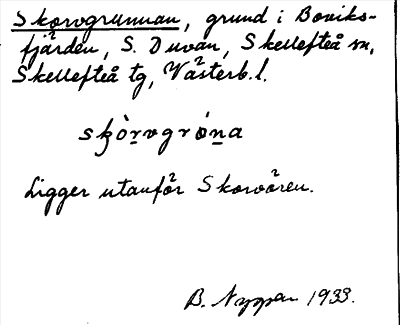 Skorvgrunnan, grund i Boviks-
fjärden, S. Duvan, Skellefteå sn,
Skellefteå tg, Västerb. l.
skòrvgróna
Ligger utanför Skorvören.
B. Nyman 1933.